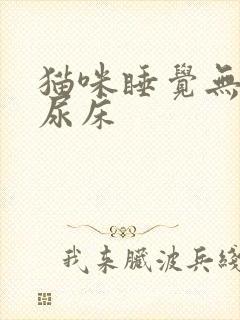 猫咪睡覺無
尿床
我来臟波兵綫